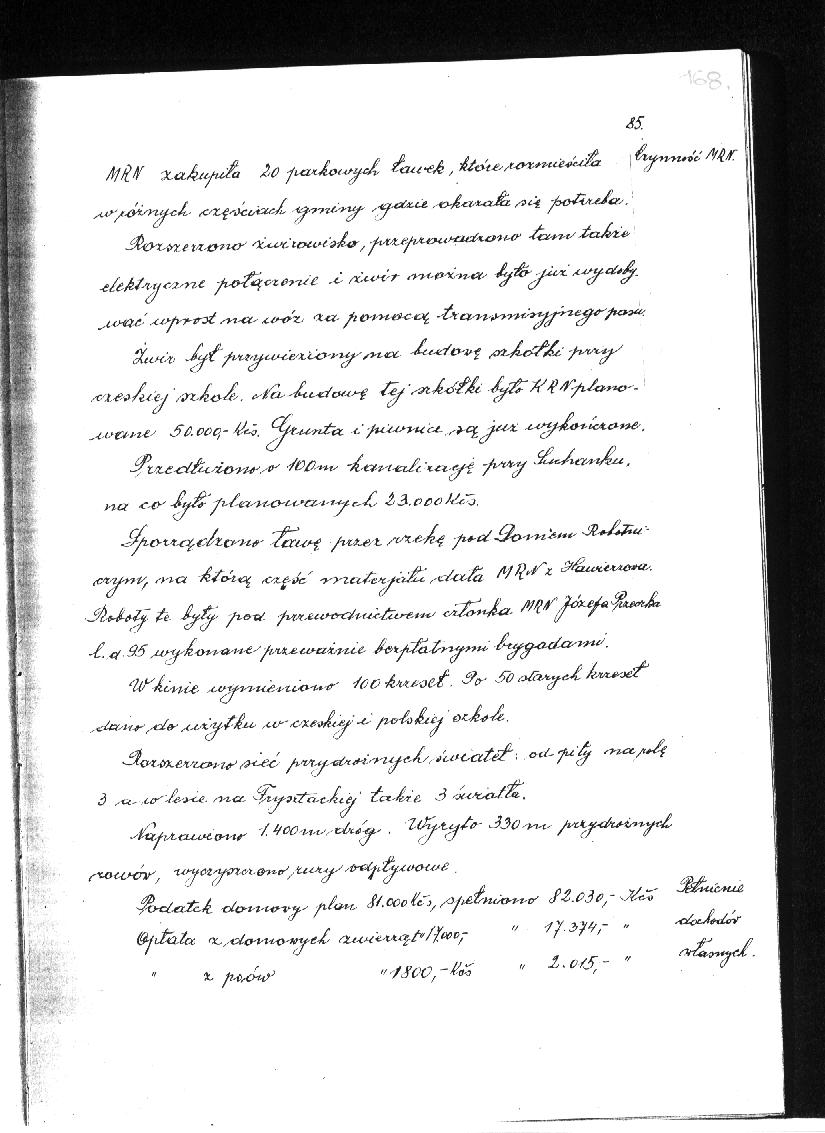 168.
85.
MRN zakupiła 20 parkowych ławek, które rozmieściła
Czynność MRN.
w różnych częściach gminy gdzie okazała się potrzeba.
Rozszerzono żwirowisko, przeprowadzono tam także
elektryczne połączenie i żwir można było już wydoby-
wać wprost na wóz za pomocą transmisyjnego pasu.
Żwir był przywieziony na budovę szkółki przy
czeskiej szkole. Na budowę tej szkółki było KRN plano-
wane 50.000,- Kčs. Grunta i piwnice są już wykończone.
Przedłużono o 100 m kanalizację przy Suchanku,
na co było planowanych 23.000 Kčs.
Sporządzono ławę przez rzekę pod Domem Robotni-
czym, na którą część materjału dała MRN z Hawierzowa.
Roboty te były pod przewodnictwem członka MRN Józefa Przeczka
l. d. 95 wykonane przeważnie bezpłatnymi brygadami.
W kinie wymieniono 100 krzeseł. Po 50 starych krzeseł
dano do użytku w czeskiej i polskiej szkole.
Rozszerzono sieć przydrożnych świateł: od piły na polę
3 a w lesie na Frysztackiej także 3 światła.
Naprawiono 1.400 m dróg. Wyryto 330 m przydrożnych
rowów, wyczyszczono rury odpływowe.
Podatek domovy plan 81.000 Kčs, spełniono 82.030,- Kčs
Pełnienie
Opłata z domowych zwierząt " 17.000,- " 17.374,- "
dochodóv
" z psów " 1800,- Kčs " 2.015,- "
własnych.